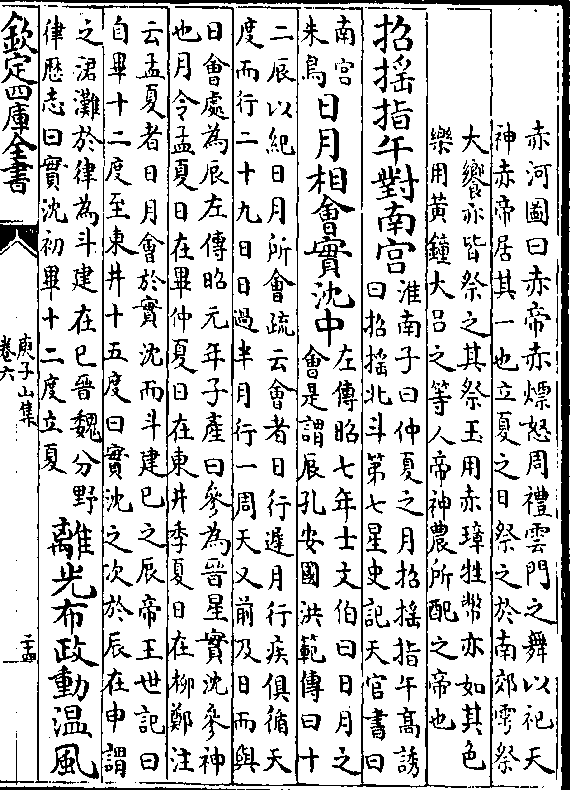 赤河圖曰赤帝赤熛怒周禮雲門之舞以祀天
神赤帝居其一也立夏之日祭之於南郊雩祭
大饗亦皆祭之其祭玉用赤璋牲幣亦如其色
樂用黃鐘大呂之等人帝神農所配之帝也
招摇指午對南宫
淮南子曰仲夏之月招摇指午髙誘
曰招摇北斗第七星史記天官書曰
南宫
朱鳥
日月相會實沈中
左傳昭七年士文伯曰日月之
會是謂辰孔安國洪範傳曰十
二辰以紀日月所會疏云會者日行遲月行疾俱循天
度而行二十九日日過半月行一周天又前及日而與
日會處為辰左傳昭元年子產曰參為晉星實沈參神
也月令孟夏日在畢仲夏日在東井季夏日在柳鄭注
云孟夏者日月會於實沈而斗建巳之辰帝王世記曰
自畢十二度至東井十五度曰實沈之次於辰在申謂
之涒灘於律為斗建在巳晉魏分野
律歴志曰實沈初畢十二度立夏
離光布政動温風
欽定四庫全書
庾子山集
卷六